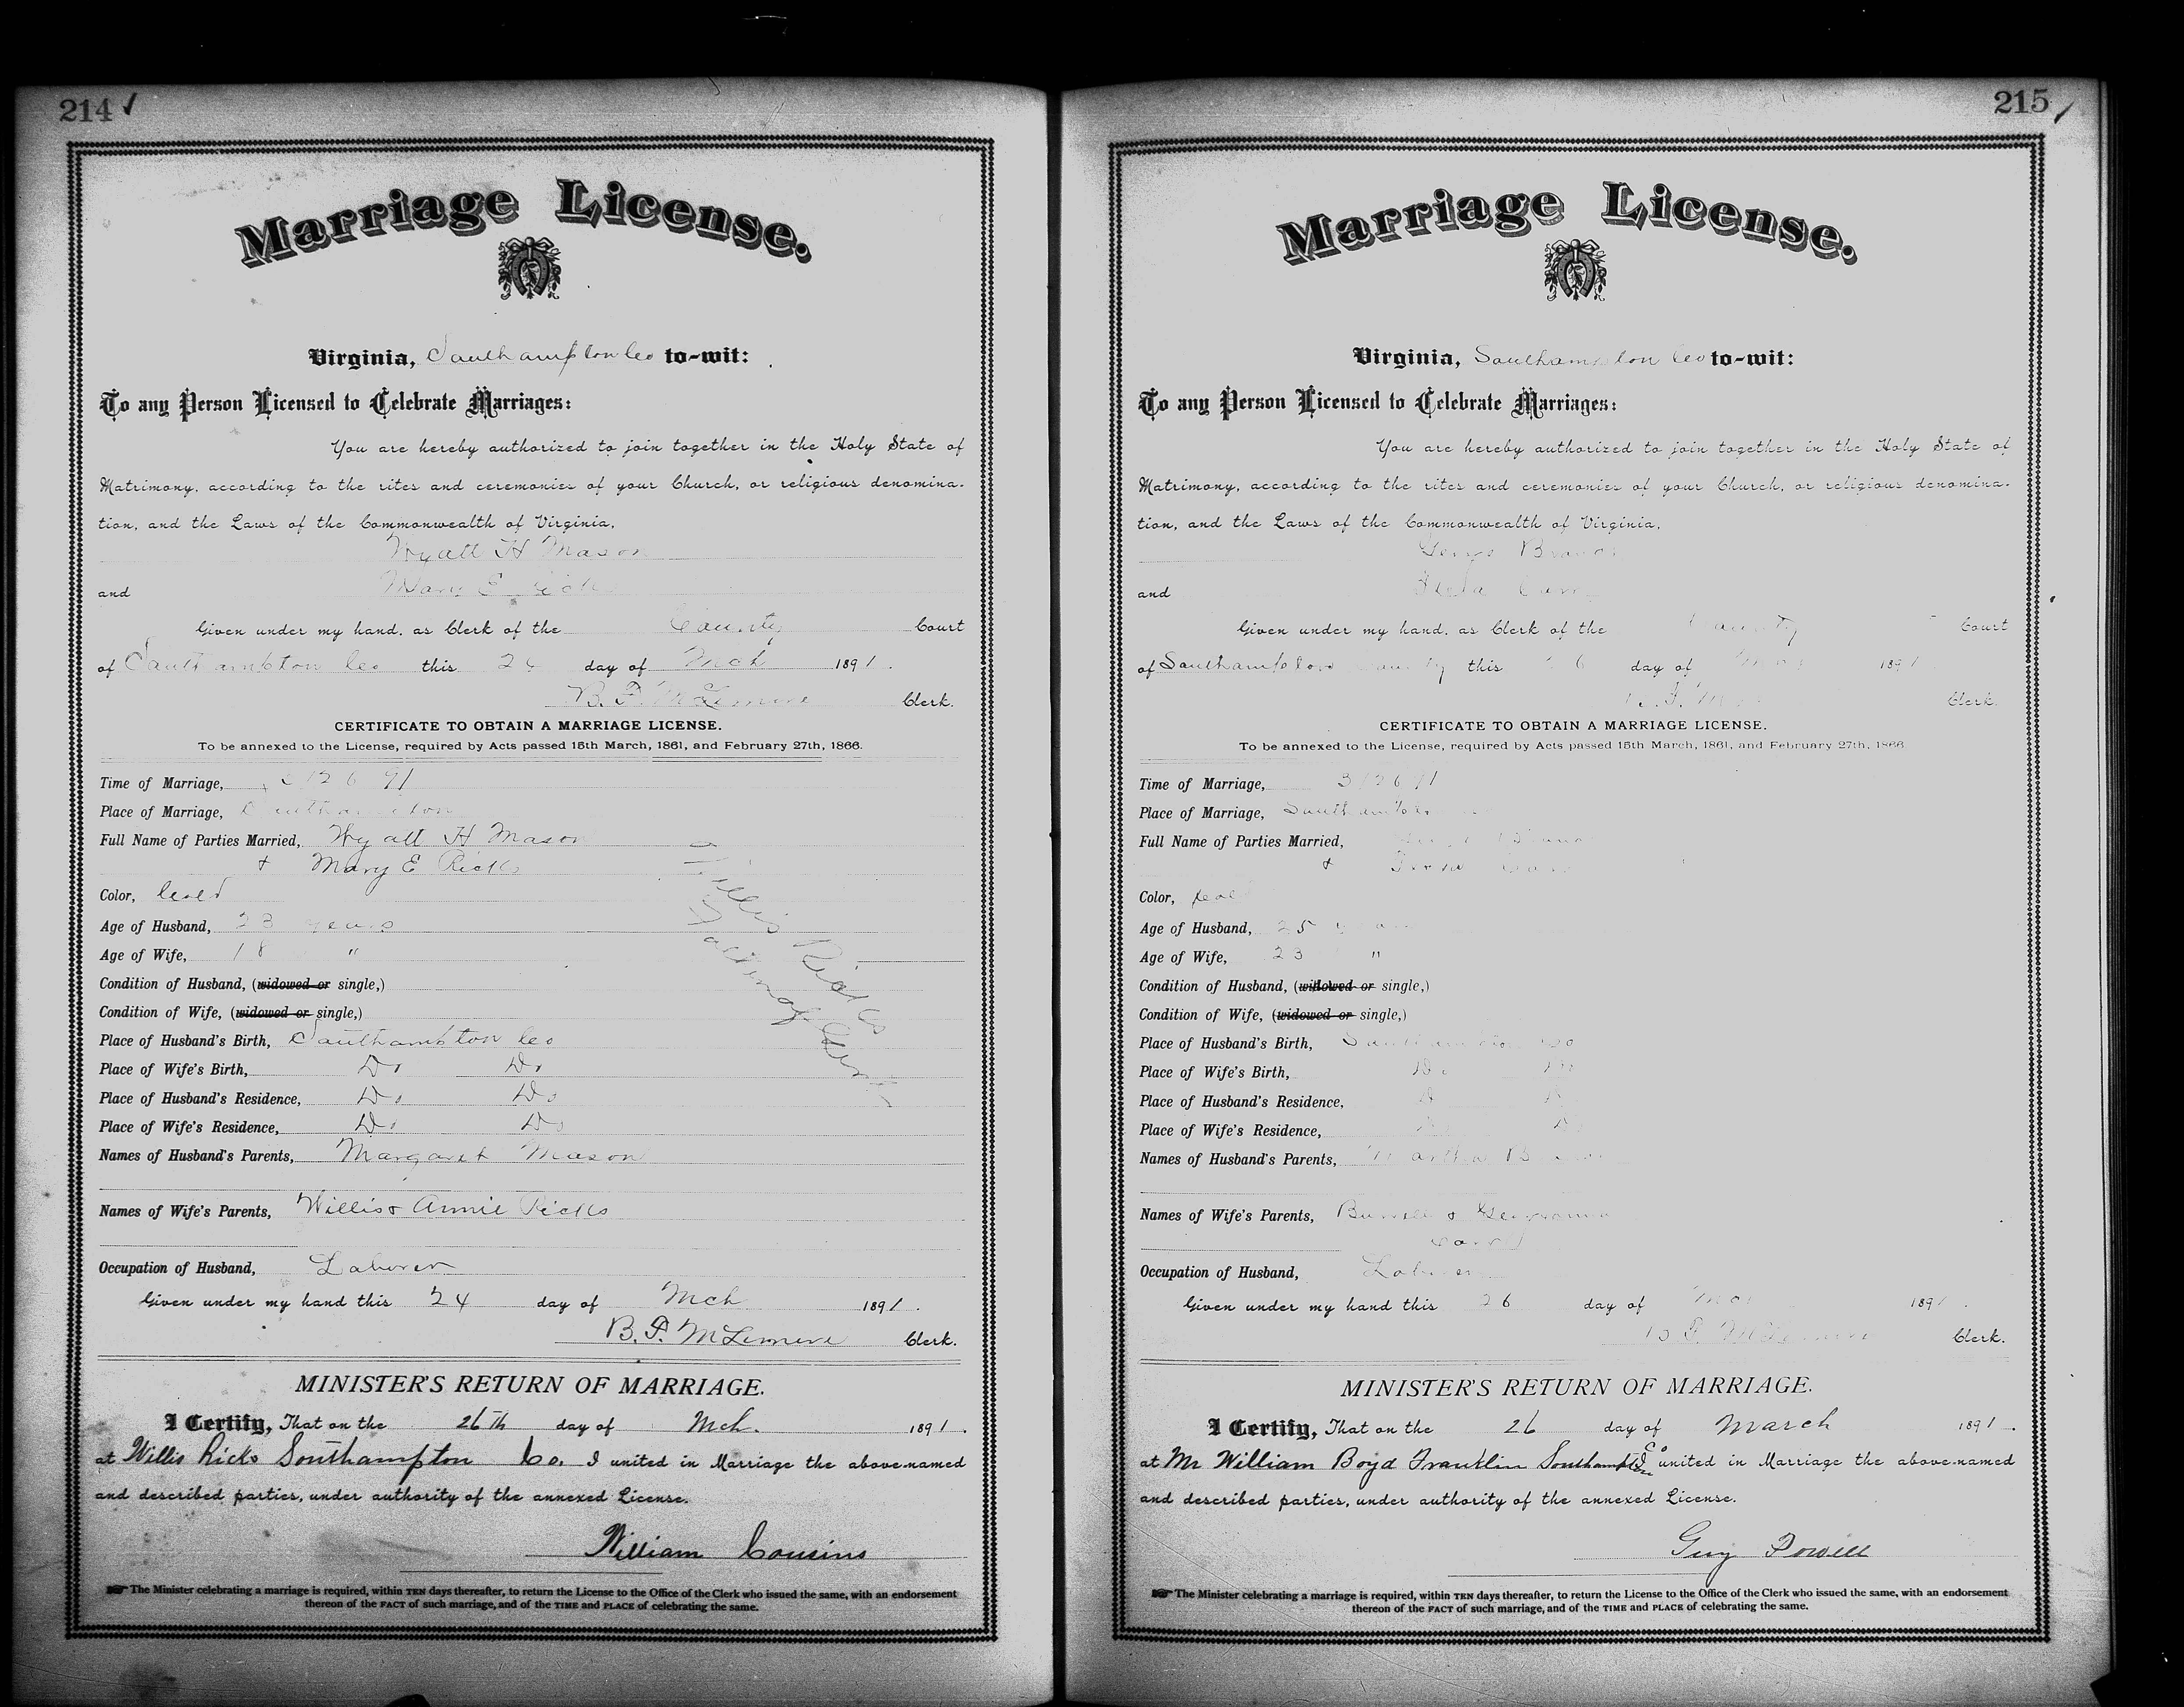 214
Marriage License.
Virginia, Southampton Co to-wit:
To any Person Licensed to Celebrate Marriages:
You are hereby authorized to join together in the Holy State of
Matrimony, according to the rites and ceremonies of your Church, or religious denomina-
tion, and the Laws of the Commonwealth of Virginia,
Wyatt H Mason
and Mary E Ricks
Given under my hand, as Clerk of the County Court
of Southampton Co this day of Mch 1891.
B. F. McLemore Clerk.
CERTIFICATE TO OBTAIN A MARRIAGE LICENSE.
To be annexed to the License, required by Acts passed 15th March, 1861, and February 27th, 1866.
Time of Marriage, 3/26 91
Place of Marriage, Southampton
Full Name of Parties Married, Wyatt H Mason
+ Mary E Ricks
Color, Cold
Age of Husband, 23 years
Age of Wife, 18 "
Condition of Husband, (widowed or single,)
Condition of Wife, (widowed or single,)
Place of Husband's Birth, Southampton Co
Place of Wife's Birth, Do Do
Place of Husband's Residence, Do Do
Place of Wife's Residence, Do Do
Names of Husband's Parents, Margaret Mason
Names of Wife's Parents, Willis & Annie Ricks
Occupation of Husband, Laborer
Given under my hand this 24 day of Mch 1891.
B. F. McLemore Clerk.
Willis Ricks
MINISTER'S RETURN OF MARRIAGE.
I Certify, That on the 26th day of Mch. 1891.
at Willis Ricks Southampton Co. I united in Marriage the above-named
and described parties, under authority of the annexed License.
William Cousins
The Minister celebrating a marriage is required, within TEN days thereafter, to return the License to the Office of the Clerk who issued the same, with an endorsement
thereon of the FACT of such marriage, and of the TIME and PLACE of celebrating the same.
215
Marriage License.
Virginia, Southampton Co to-wit:
To any Person Licensed to Celebrate Marriages:
You are hereby authorized to join together in the Holy State of
Matrimony, according to the rites and ceremonies of your Church, or religious denomina-
tion, and the Laws of the Commonwealth of Virginia,
and
Given under my hand, as Clerk of the County Court
of Southampton County this 26 day of 1891
Clerk.
CERTIFICATE TO OBTAIN A MARRIAGE LICENSE.
To be annexed to the License, required by Acts passed 15th March, 1861, and February 27th, 1866
Time of Marriage, 3/26 91
Place of Marriage, Southampton
Full Name of Parties Married,
+
Color, Col
Age of Husband, 25 years
Age of Wife, 23 "
Condition of Husband, (widowed or single,)
Condition of Wife, (widowed or single,)
Place of Husband's Birth, Southampton Co
Place of Wife's Birth, Do Do
Place of Husband's Residence,
Place of Wife's Residence,
Names of Husband's Parents, Martha
Names of Wife's Parents, &
Occupation of Husband, Laborer
Given under my hand this 26 day of 1891.
B F McLemore Clerk.
MINISTER'S RETURN OF MARRIAGE.
I Certify, That on the 26 day of March 1891.
at Mr William Boyd Franklin Southampton Co I united in Marriage the above-named
and described parties, under authority of the annexed License.
Guy Powell
The Minister celebrating a marriage is required, within TEN days thereafter, to return the License to the Office of the Clerk who issued the same, with an endorsement
thereon of the FACT of such marriage, and of the TIME and PLACE of celebrating the same.